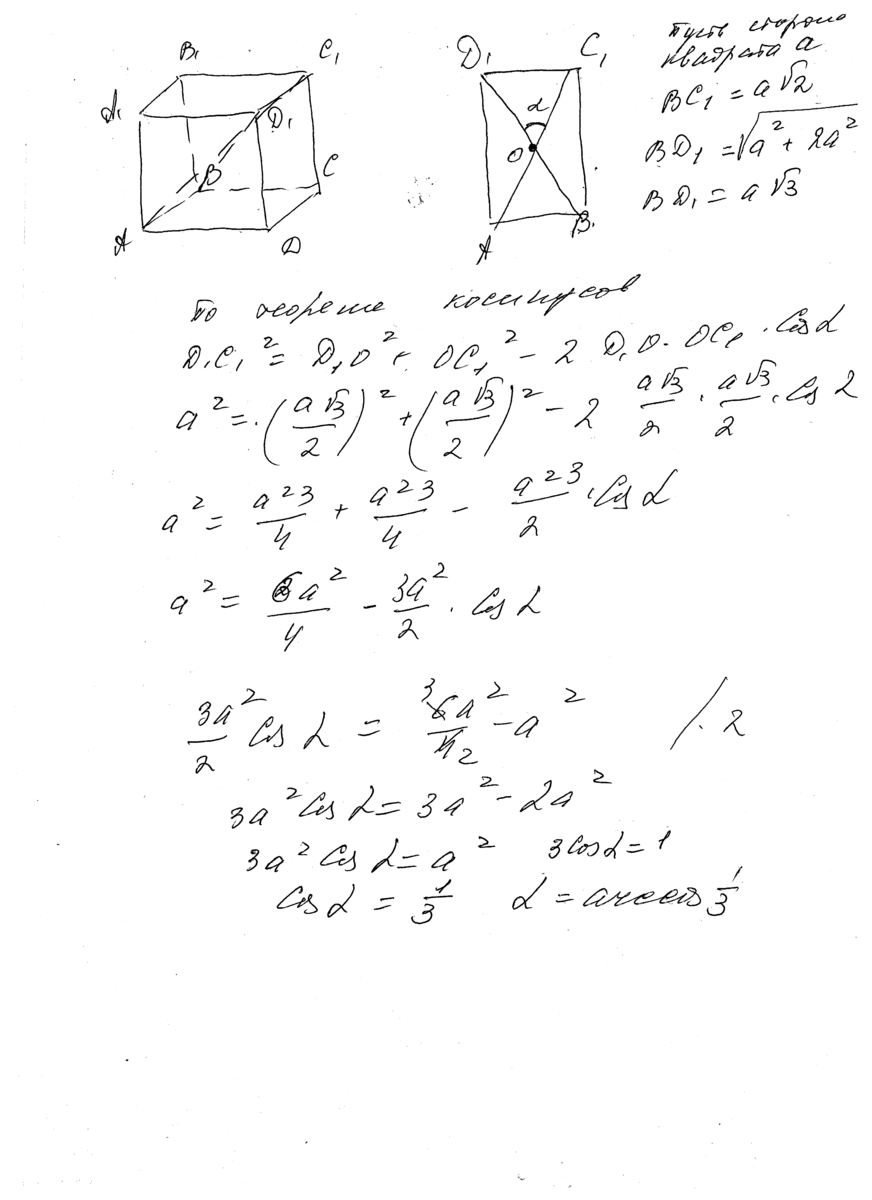 B₁ C₁
A₁ D₁
B C
A D
D₁ C₁
α
O
A B
Пусть сторона
квадрата a
BC₁ = a√2
BD₁ = √(a² + 2a²)
BD₁ = a√3
По теореме косинусов
D₁C₁² = D₁O² + OC₁² - 2 D₁O · OC₁ · Cos α
a² = (a√3/2)² + (a√3/2)² - 2 a√3/2 · a√3/2 · Cos α
a² = a²3/4 + a²3/4 - a²3/2 · Cos α
a² = 6a²/4 - 3a²/2 · Cos α
3a²/2 Cos α = 6a²/4 3/2 - a² / · 2
3a² Cos α = 3a² - 2a²
3a² Cos α = a² 3 cos α = 1
Cos α = 1/3 α = arccos 1/3